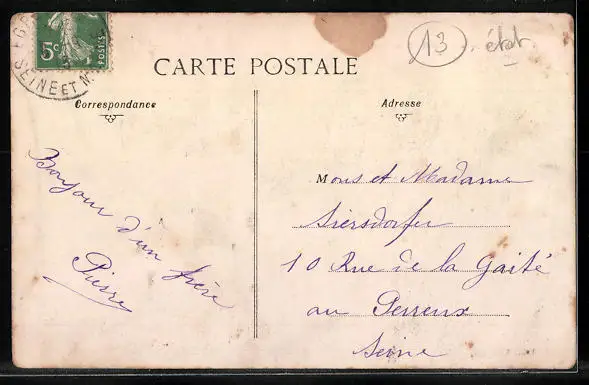 5c
POSTES
SEINE ET M
13
état
CARTE POSTALE
Correspondance
Adresse
Bonjour d'un frère
Pierre
Mons et Madame
Siersdorfer
10 Rue de la Gaité
au Perreux
Seine